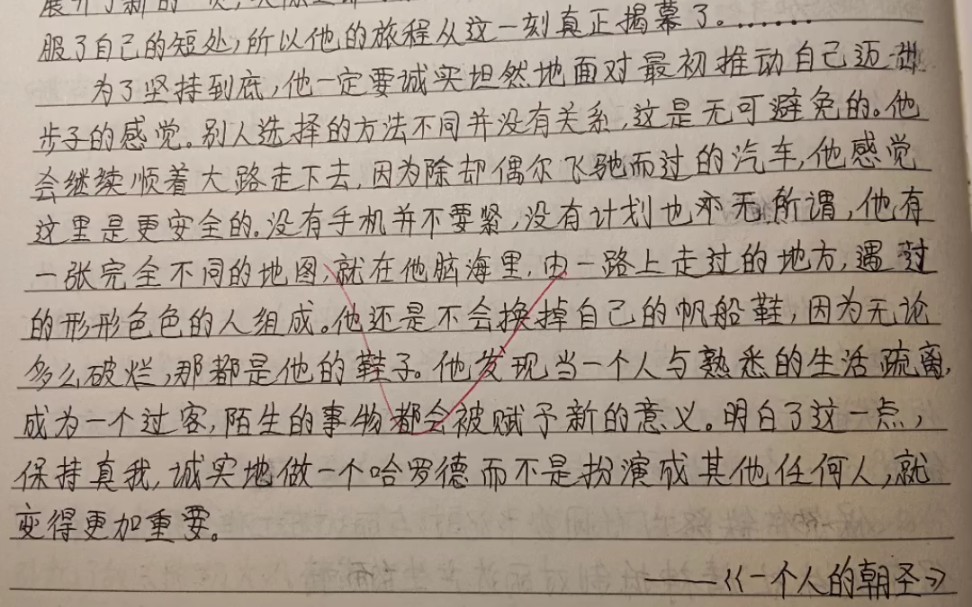 展开了新的一页,
服了自己的短处,所以他的旅程从这一刻真正揭幕了。......
为了坚持到底,他一定要诚实坦然地面对最初推动自己迈出
步子的感觉。别人选择的方法不同并没有关系,这是无可避免的。他
会继续顺着大路走下去,因为除却偶尔飞驰而过的汽车,他感觉
这里是更安全的。没有手机并不要紧,没有计划也亦无所谓,他有
一张完全不同的地图,就在他脑海里,由一路上走过的地方,遇过
的形形色色的人组成。他还是不会换掉自己的帆船鞋,因为无论
多么破烂,那都是他的鞋子。他发现当一个人与熟悉的生活疏离,
成为一个过客,陌生的事物都会被赋予新的意义。明白了这一点,
保持真我,诚实地做一个哈罗德而不是扮演成其他任何人,就
变得更加重要。
——《一个人的朝圣》